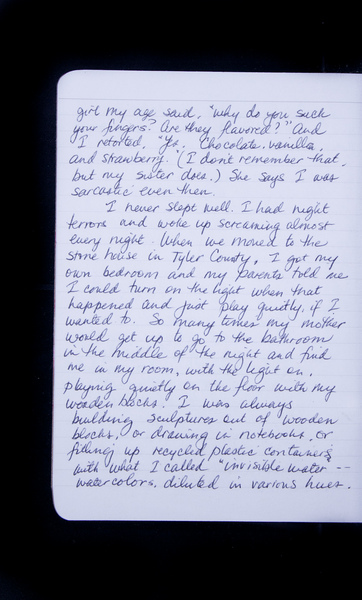 girl my age said, "why do you suck
your fingers? Are they flavored?" And
I retorted, "Yes. Chocolate, vanilla,
and strawberry." (I don't remember that,
but my sister does.) She says I was
sarcastic even then.
I never slept well. I had night
terrors and woke up screaming almost
every night. When we moved to the
stone house in Tyler County, I got my
own bedroom and my parents told me
I could turn on the light when that
happened and just play quietly, if I
wanted to. So many times my mother
would get up to go to the bathroom
in the middle of the night and find
me in my room, with the light on,
playing quietly on the floor with my
wooden blocks. I was always
building sculptures out of wooden
blocks, or drawing in notebooks, or
filling up recycled plastic containers
with what I called "invisible water --
watercolors, diluted in various hues.